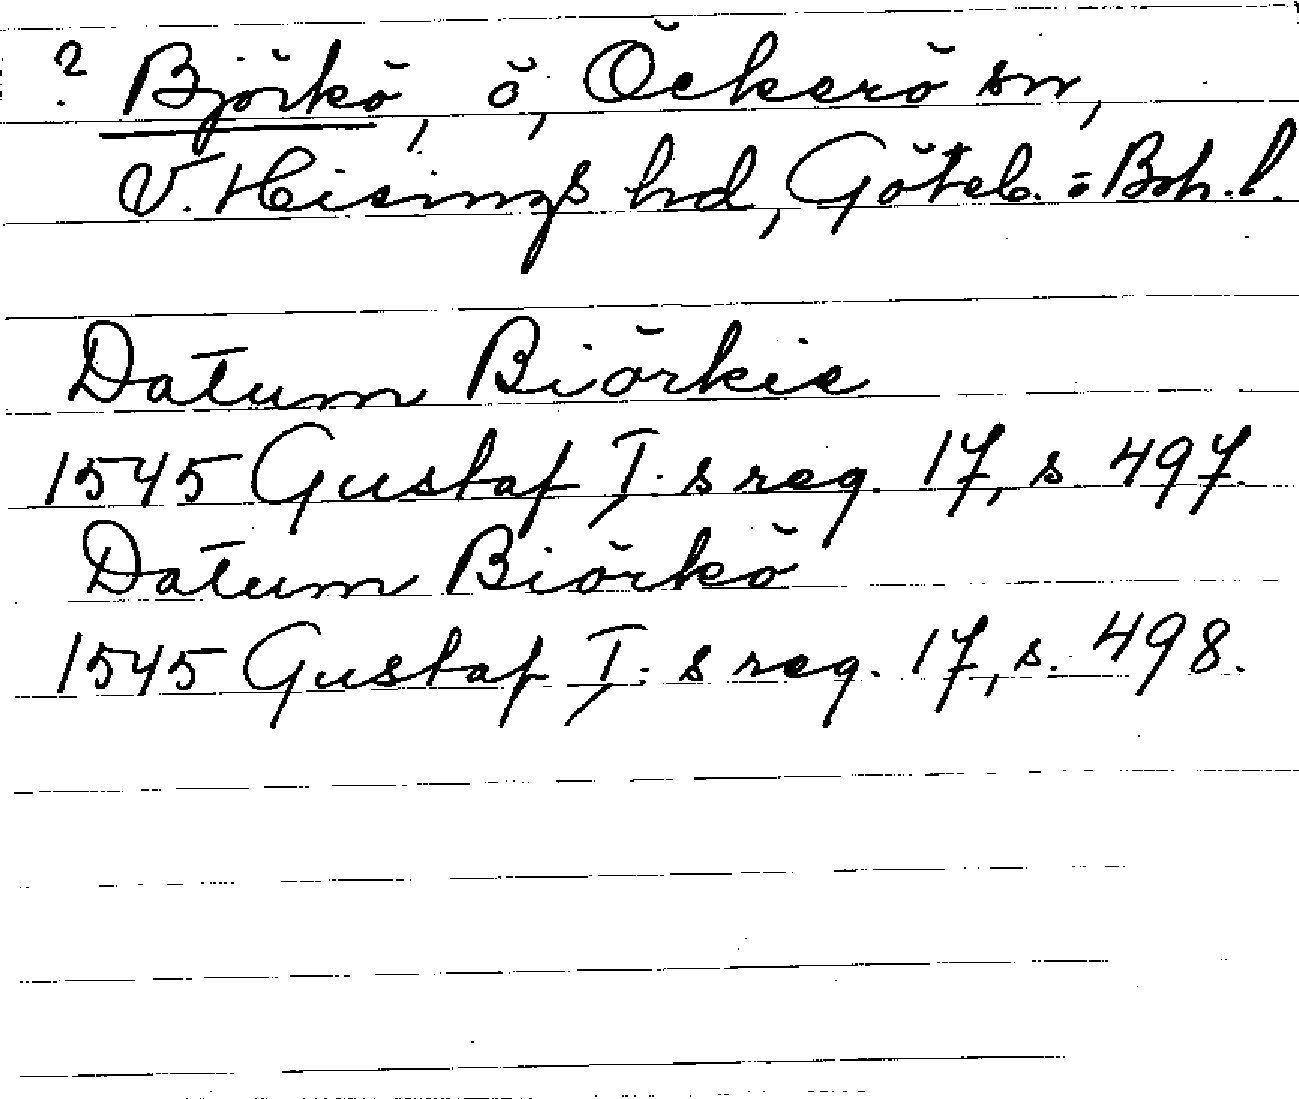 ? Björkö, ö, Öckerö sn,
V. Hisings hd, Göteb. o Boh. l.
Datum Biörkie
1545 Gustaf I:s reg. 17, s 497.
Datum Biörkö
1545 Gustaf I:s reg. 17, s. 498.